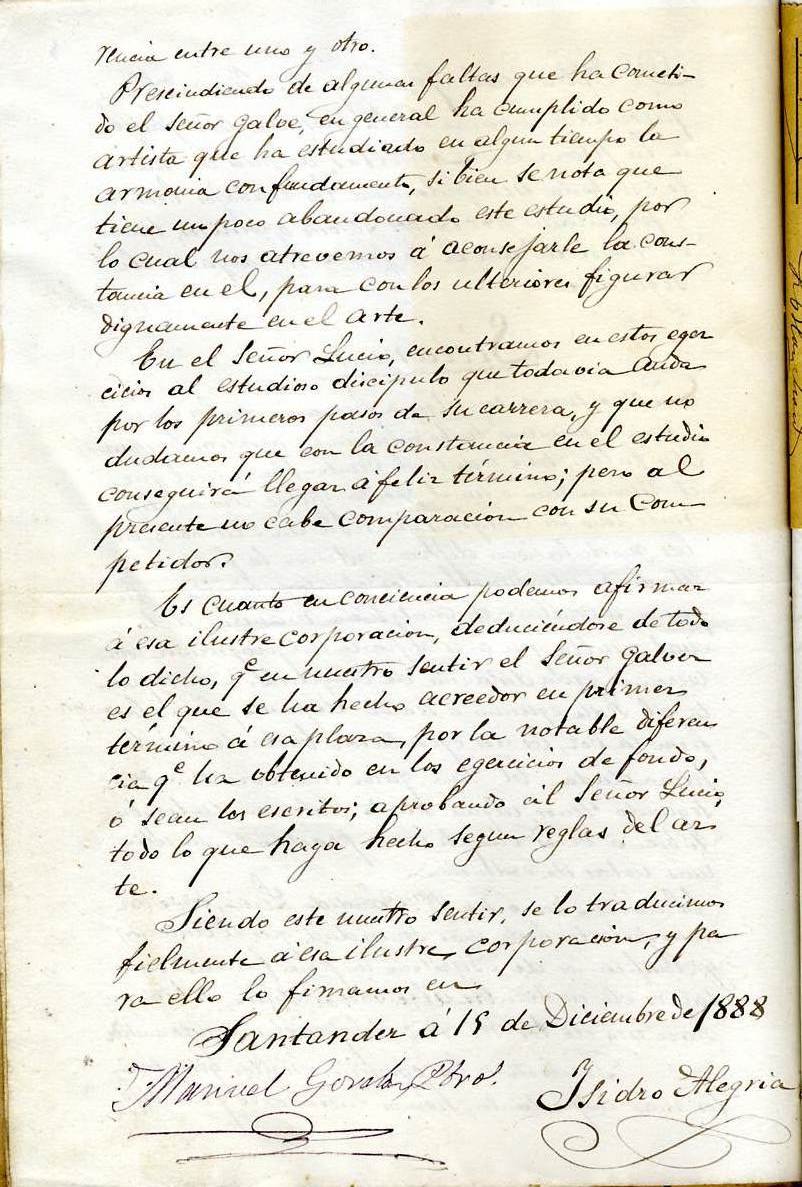 rencia entre uno y otro.
Prescindiendo de algunas faltas que ha cometi-
do el Señor Galve, en general ha cumplido como
artista que ha estudiado en algun tiempo la
armonia con fundamento, si bien se nota que
tiene un poco abandonado este estudio, por
lo cual nos atrevemos á aconsejarle la cons-
tancia en el, para con los ulteriores figurar
dignamente en el arte.
En el Señor Lucio, encontramos en estos eger
cicios al estudioso discipulo que todavia anda
por los primeros pasos de su carrera, y que no
dudamos que con la constancia en el estudio
conseguirá llegar á feliz término; pero al
presente no cabe comparación con su com
petidor.
Es cuanto en conciencia podemos afirmar
á esa ilustre corporacion, deduciéndose de todo
lo dicho, qe en nuestro sentir el Señor Galve
es el que se ha hecho acreedor en primer
término á esa plaza, por la notable diferen
cia qe ha obtenido en los egercicios de fondo,
ó sean los escritos; aprobando al Señor Lucio,
todo lo que haya hecho segun reglas del ar
te.
Siendo este nuestro sentir, se lo traducimos
fielmente á esa ilustre corporación, y pa
ra ello lo firmamos en
Santander á 15 de Diciembre de 1888
Manuel Pbro.
Isidro Alegria